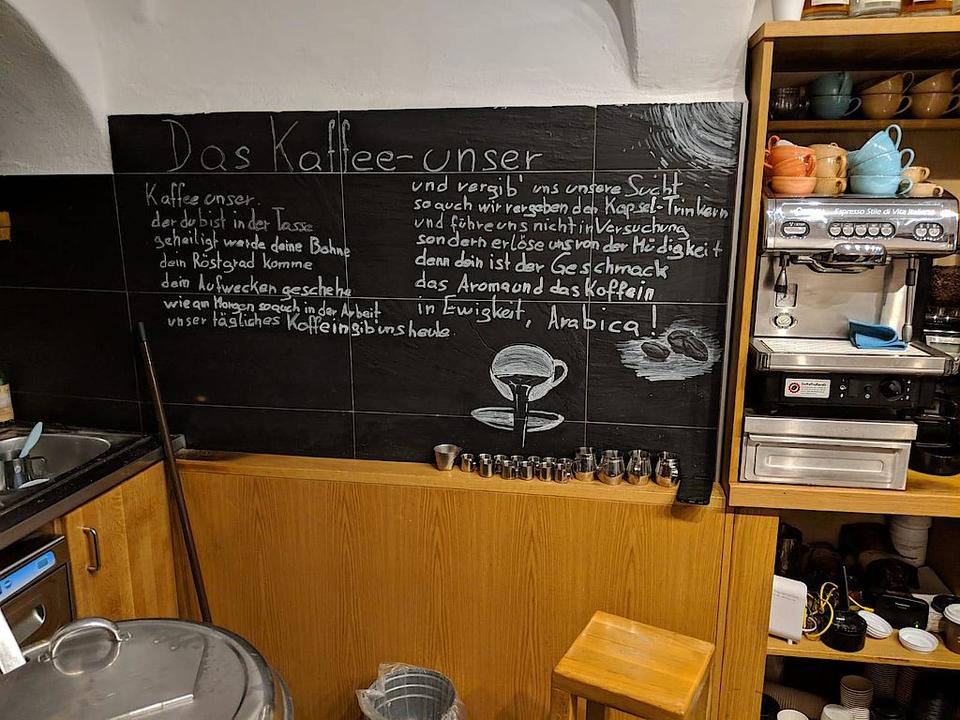 Das Kaffee-unser
Kaffee unser.
der du bist in der Tasse
geheiligt werde deine Bohne
dein Röstgrad komme
dein Aufwecken geschehe
wie am Morgen so auch in der Arbeit
unser tägliches Koffein gib uns heute
und vergib' uns unsere Sucht
so auch wir vergeben den Kapsel-Trinkern
und führe uns nicht in Versuchung
sondern erlöse uns von der Müdigkeit
denn dein ist der Geschmack
das Aroma und das Koffein
in Ewigkeit, Arabica!
Espresso Stile di Vita Italiano